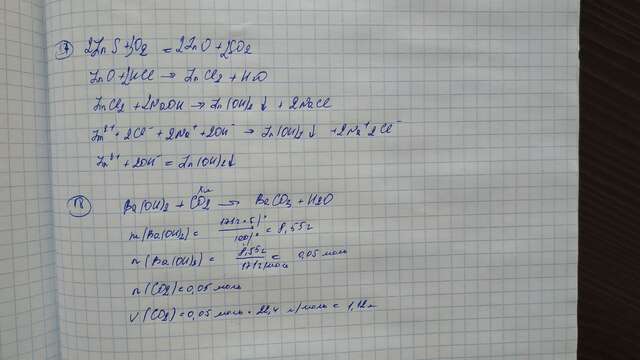 17 2ZnS + 3O2 = 2ZnO + 2SO2
ZnO + 2HCl → ZnCl2 + H2O
ZnCl2 + 2NaOH → Zn(OH)2↓ + 2NaCl
Zn²⁺ + 2Cl⁻ + 2Na⁺ + 2OH⁻ → Zn(OH)2↓ + 2Na⁺ 2Cl⁻
Zn²⁺ + 2OH⁻ = Zn(OH)2↓
18 Ba(OH)2 + CO2 → BaCO3 + H2O
m(Ba(OH)2) = 171г·5% / 100% = 8,55г
n(Ba(OH)2) = 8,55г / 171г/моль = 0,05 моль
n(CO2) = 0,05 моль
V(CO2) = 0,05 моль · 22,4 л/моль = 1,12л